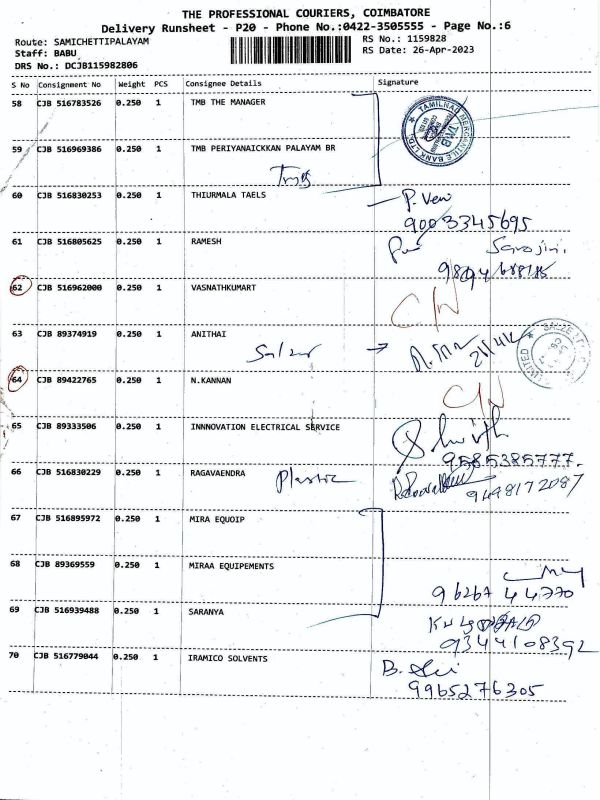 THE PROFESSIONAL COURIERS, COIMBATORE
Delivery Runsheet - P20 - Phone No.:0422-3505555 - Page No.:6
Route: SAMICHETTIPALAYAM RS No.: 1159828
Staff: BABU RS Date: 26-Apr-2023
DRS No.: DCJB115982806
S No Consignment No Weight PCS Consignee Details Signature
58 CJB 516783526 0.250 1 TMB THE MANAGER
TAMILNAD MERCANTILE BANK LTD. TMB
59 CJB 516969386 0.250 1 TMB PERIYANAICKKAN PALAYAM BR
60 CJB 516830253 0.250 1 THIURMALA TAELS P. Veni
9003345695
61 CJB 516805625 0.250 1 RAMESH Sarojini.
62 CJB 516962000 0.250 1 VASNATHKUMART
C/N
63 CJB 89374919 0.250 1 ANITHAI
64 CJB 89422765 0.250 1 N.KANNAN
C/N
65 CJB 89333506 0.250 1 INNNOVATION ELECTRICAL SERVICE
9585385777.
66 CJB 516830229 0.250 1 RAGAVAENDRA Plastic
9498172087
67 CJB 516895972 0.250 1 MIRA EQUOIP
68 CJB 89369559 0.250 1 MIRAA EQUIPEMENTS
96267 44770
69 CJB 516939488 0.250 1 SARANYA
9344108392
70 CJB 516779044 0.250 1 IRAMICO SOLVENTS B.
9965276305